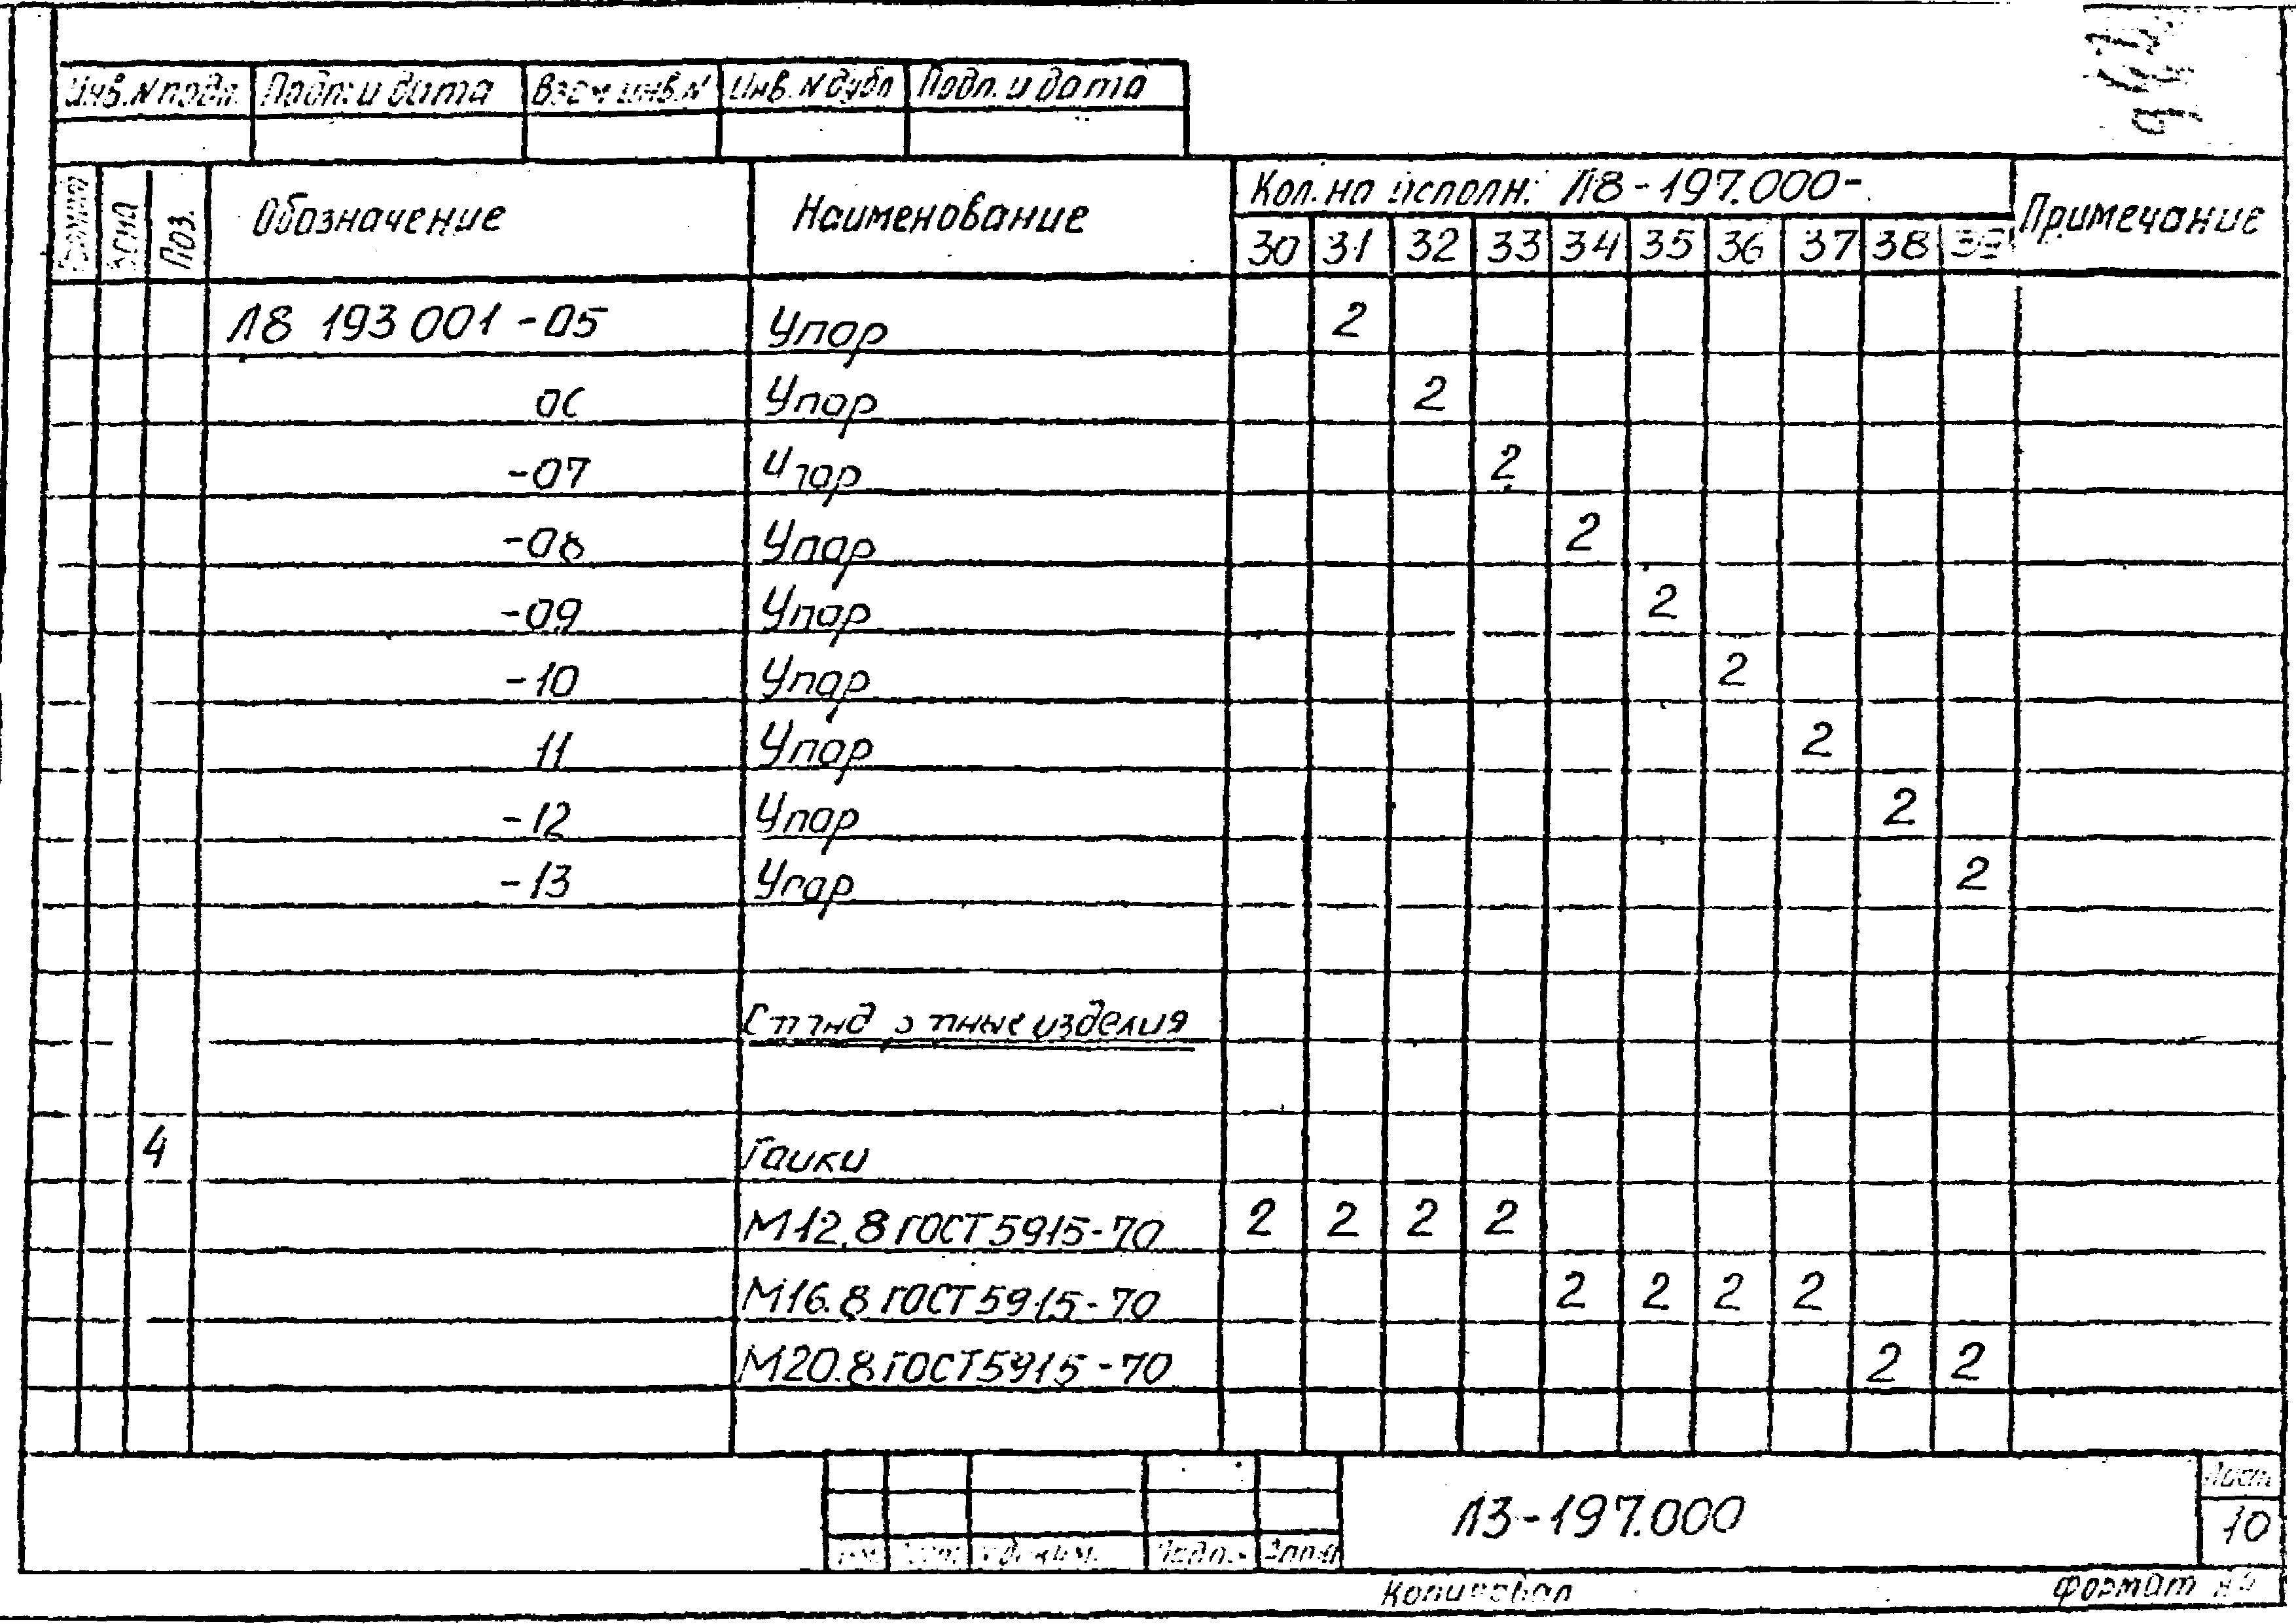 Инв.N подл. Подп. и дата Взам инв.N Инв.N дубл Подп. и дата
Формат Зона Поз. Обозначение Наименование Кол. на исполн. Л8-197.000- Примечание
30 31 32 33 34 35 36 37 38 39
Л8 193 001 -05 Упор 2
06 Упор 2
-07 Упор 2
-08 Упор 2
-09 Упор 2
-10 Упор 2
11 Упор 2
-12 Упор 2
-13 Упор 2
Стандартные изделия
4 Гайки
М12.8 ГОСТ 5915-70 2 2 2 2
М16.8 ГОСТ 5915-70 2 2 2 2
М20.8 ГОСТ 5915-70 2 2
Л3-197.000
Лист
10
Подп.
Копировал Формат